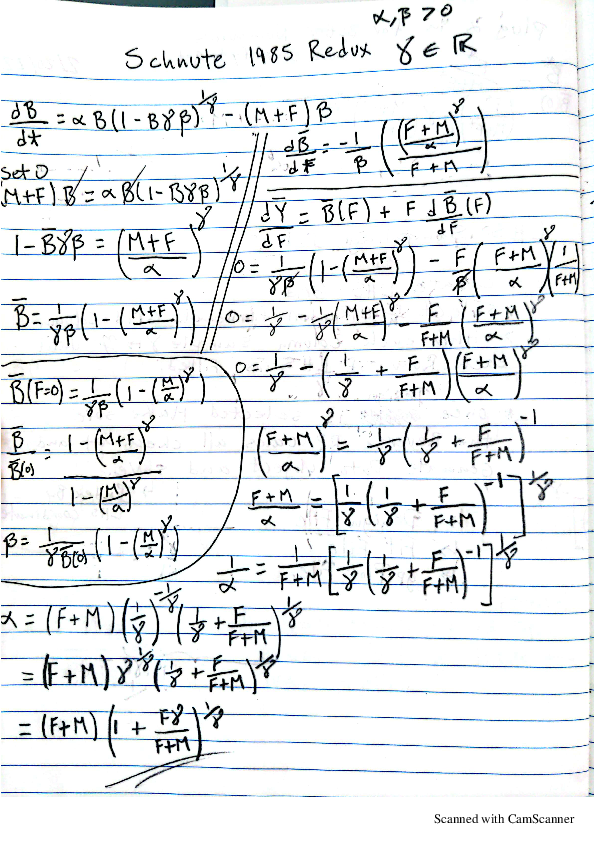 α, β > 0
Schnute 1985 Redux γ ∈ ℝ
dB/dt = αB(1 - Bγβ)^(1/γ) - (M+F)B
set 0
(M+F)B̄ = αB̄(1 - B̄γβ)^(1/γ)
1 - B̄γβ = ((M+F)/α)^γ
B̄ = 1/(γβ) (1 - ((M+F)/α)^γ)
B̄(F=0) = 1/(γβ) (1 - (M/α)^γ)
B̄/B̄(0) = (1 - ((M+F)/α)^γ)/(1 - (M/α)^γ)
β = 1/(γB̄(0)) (1 - (M/α)^γ)
dB̄/dF = -1/β (((F+M)/α)^γ/(F+M))
dȲ/dF = B̄(F) + F dB̄/dF (F)
0 = 1/(γβ) (1 - ((M+F)/α)^γ) - F/β ((F+M)/α)^γ (1/(F+M))
0 = 1/γ - 1/γ((M+F)/α)^γ - F/(F+M) ((F+M)/α)^γ
0 = 1/γ - (1/γ + F/(F+M)) ((F+M)/α)^γ
((F+M)/α)^γ = 1/γ (1/γ + F/(F+M))^-1
(F+M)/α = [1/γ (1/γ + F/(F+M))^-1]^(1/γ)
1/α = 1/(F+M) [1/γ (1/γ + F/(F+M))^-1]^(1/γ)
α = (F+M) (1/γ)^(-1/γ) (1/γ + F/(F+M))^(1/γ)
= (F+M) γ^(1/γ) (1/γ + F/(F+M))^(1/γ)
= (F+M) (1 + Fγ/(F+M))^(1/γ)
Scanned with CamScanner